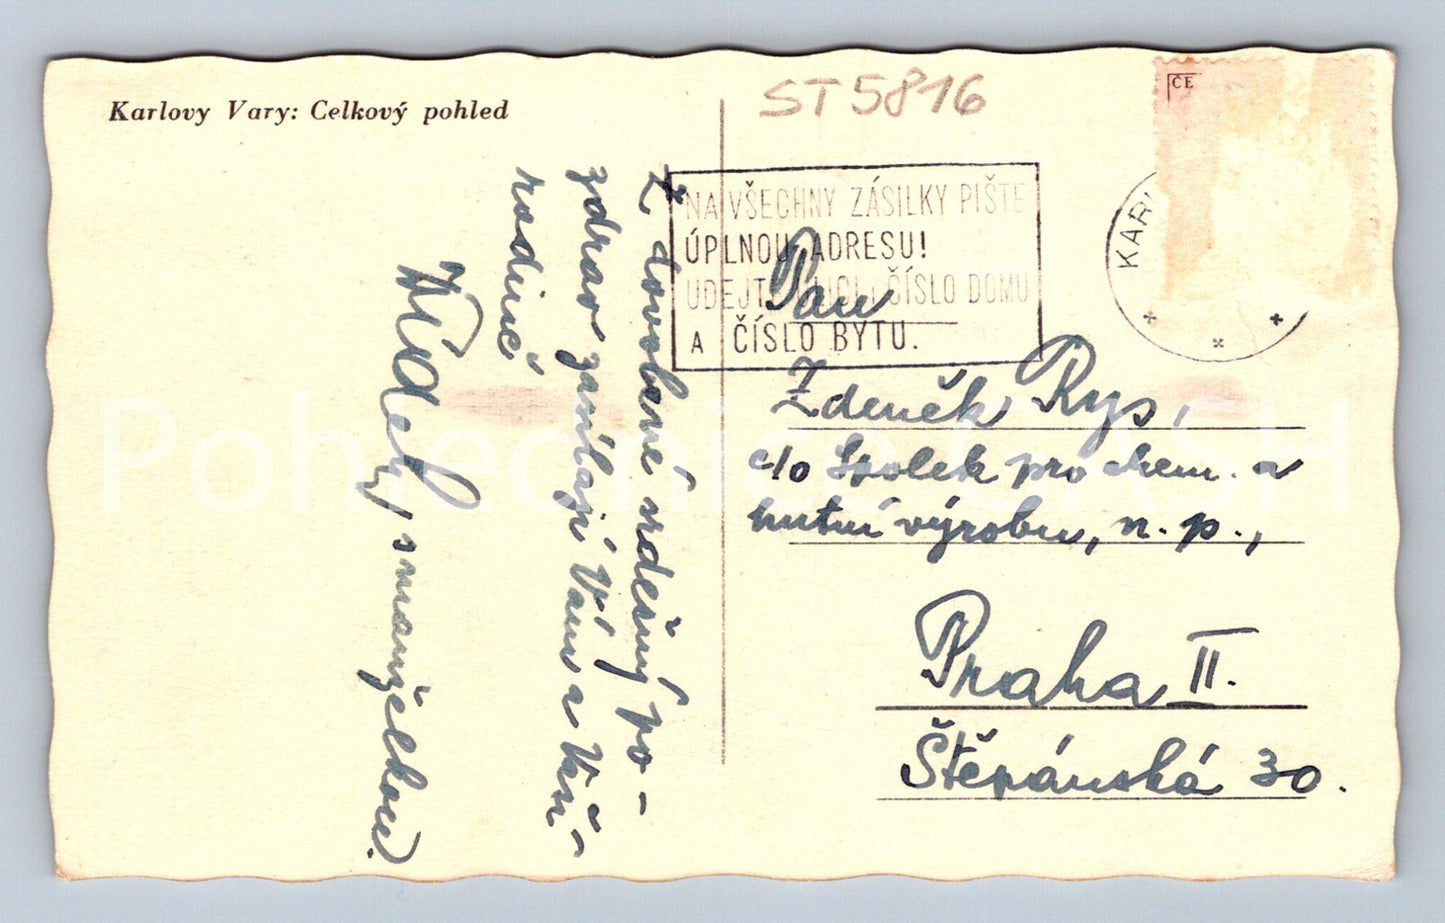 Karlovy Vary: Celkový pohled
ST 5816
ČE
KARL
NA VŠECHNY ZÁSILKY PIŠTE
ÚPLNOU ADRESU!
UDEJTE ULICI, ČÍSLO DOMU
A ČÍSLO BYTU.
Z dovolené srdečný po-
zdrav zasílají Vám a Vaší
rodině
s manželkou.
Pan
Zdeněk Rys,
c/o Spolek pro chem. a
hutní výrobu, n. p.,
Praha II.
Štěpánská 30.